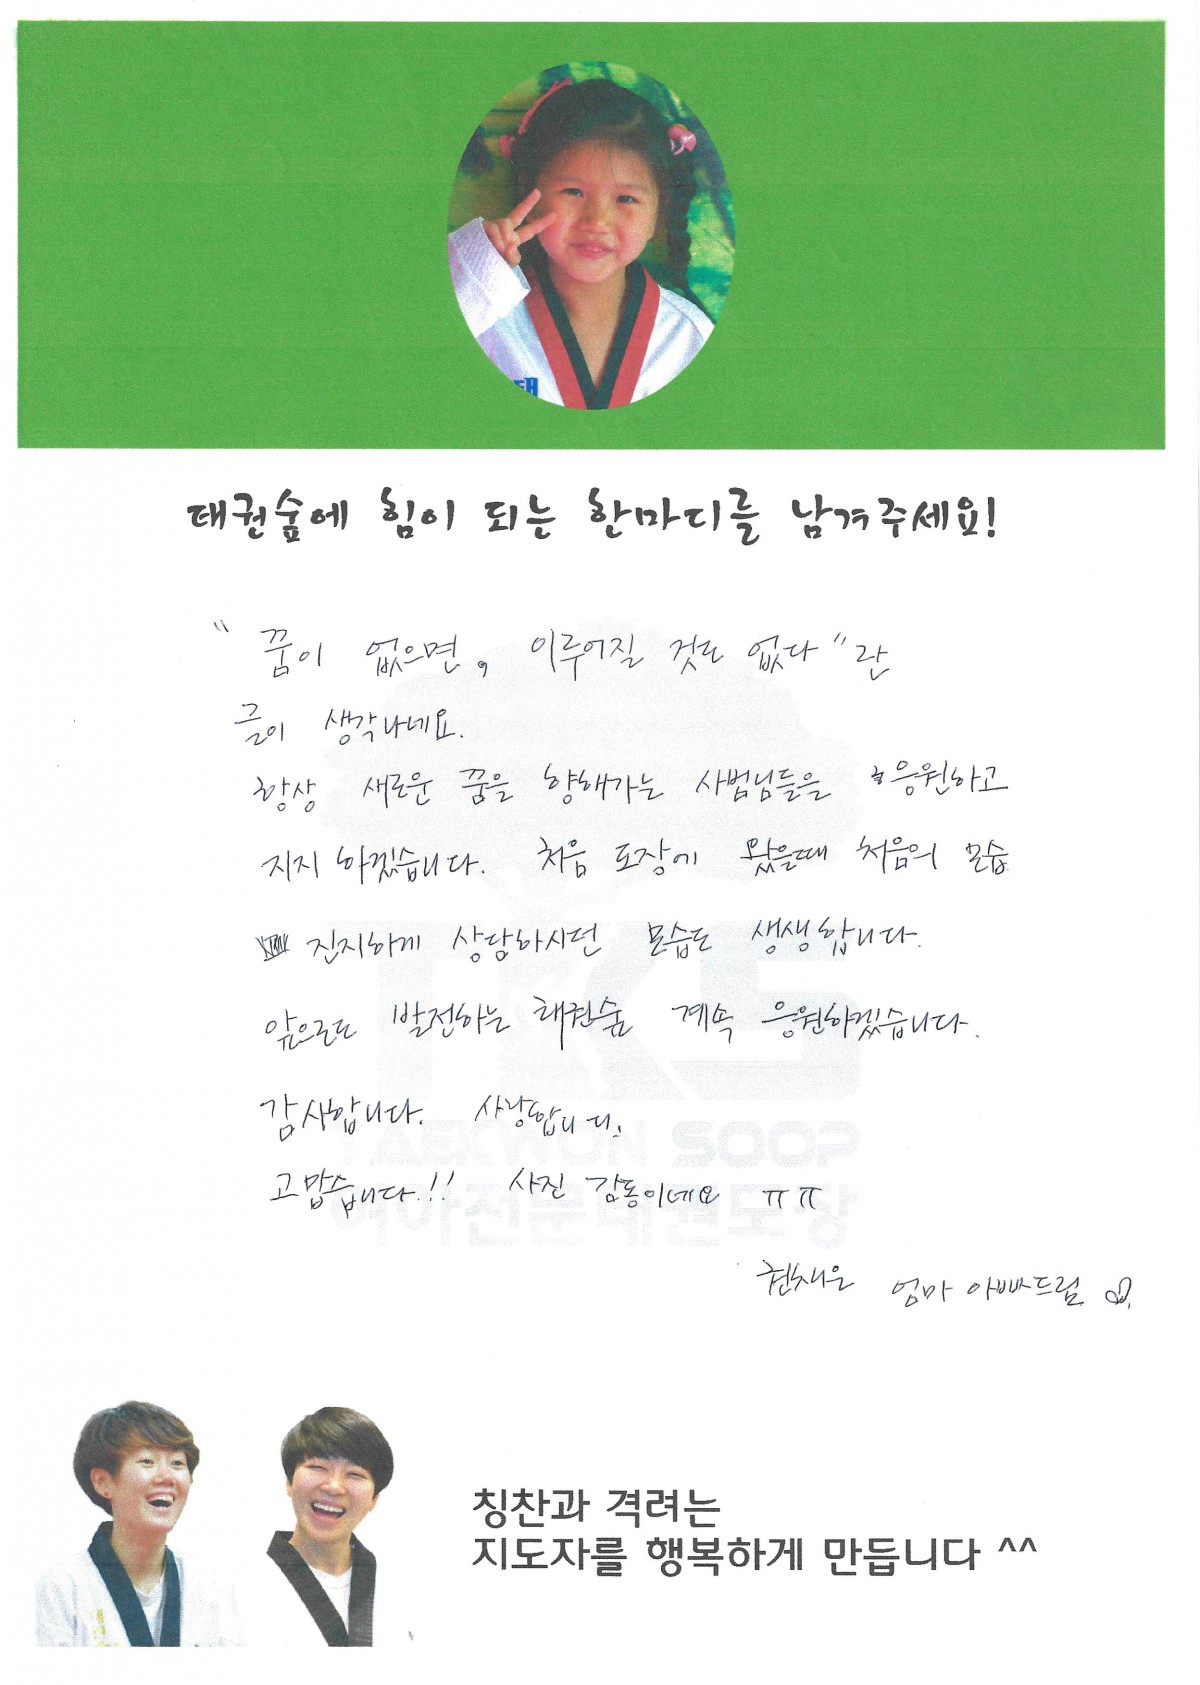 태
태권숲에 힘이 되는 한마디를 남겨주세요!
"꿈이 없으면, 이루어질 것도 없다"란
글이 생각나네요.
항상 새로운 꿈을 향해가는 사범님들을 응원하고
지지 하겠습니다. 처음 도장에 왔을때 처음의 모습
진지하게 상담하시던 모습도 생생합니다.
앞으로도 발전하는 태권숲 계속 응원하겠습니다.
감사합니다. 사랑합니다.
고맙습니다.!! 사진 감동이네요 ㅠㅠ
권채은 엄마 아빠드림
TKS
TAEKWON SOOP
여아전문태권도장
칭찬과 격려는
지도자를 행복하게 만듭니다 ^^